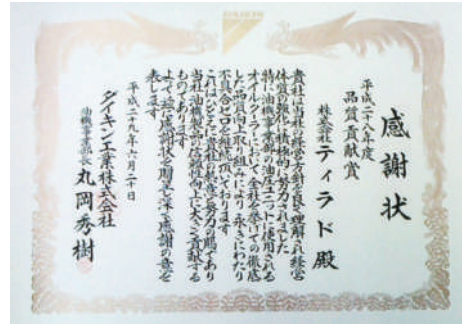 感謝状
平成二十八年度
品質貢献賞
株式会社ティラド殿
貴社は当社の経営方針を良く理解され経営
体質の強化に積極的に努力されました
特に油機事業部の油圧ユニットに使用される
オイルクーラーにおいて全社を挙げての徹底
した品質向上取り組みにより永きにわたり
不具合ゼロを継続頂いております
これはひとえに貴社の熱意と努力の賜であり
当社油機製品の信頼性向上に大きく貢献する
ものであります
よって茲に感謝状を贈呈し深く感謝の意を
表します
平成二十九年六月二十日
ダイキン工業株式会社
油機事業部長 丸岡秀樹